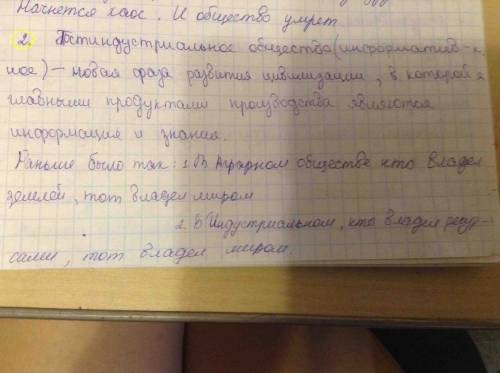 Начнется хаос. И общество умрет
2. Постиндустриальное общество (информатив-
ное) – новая фаза развития цивилизации, в которой
главными продуктами производства являются
информация и знания.
Раньше было так: 1. В Аграрном обществе кто владел
землей, тот владел миром
2. В Индустриальном, кто владел ресур-
сами, тот владел миром.